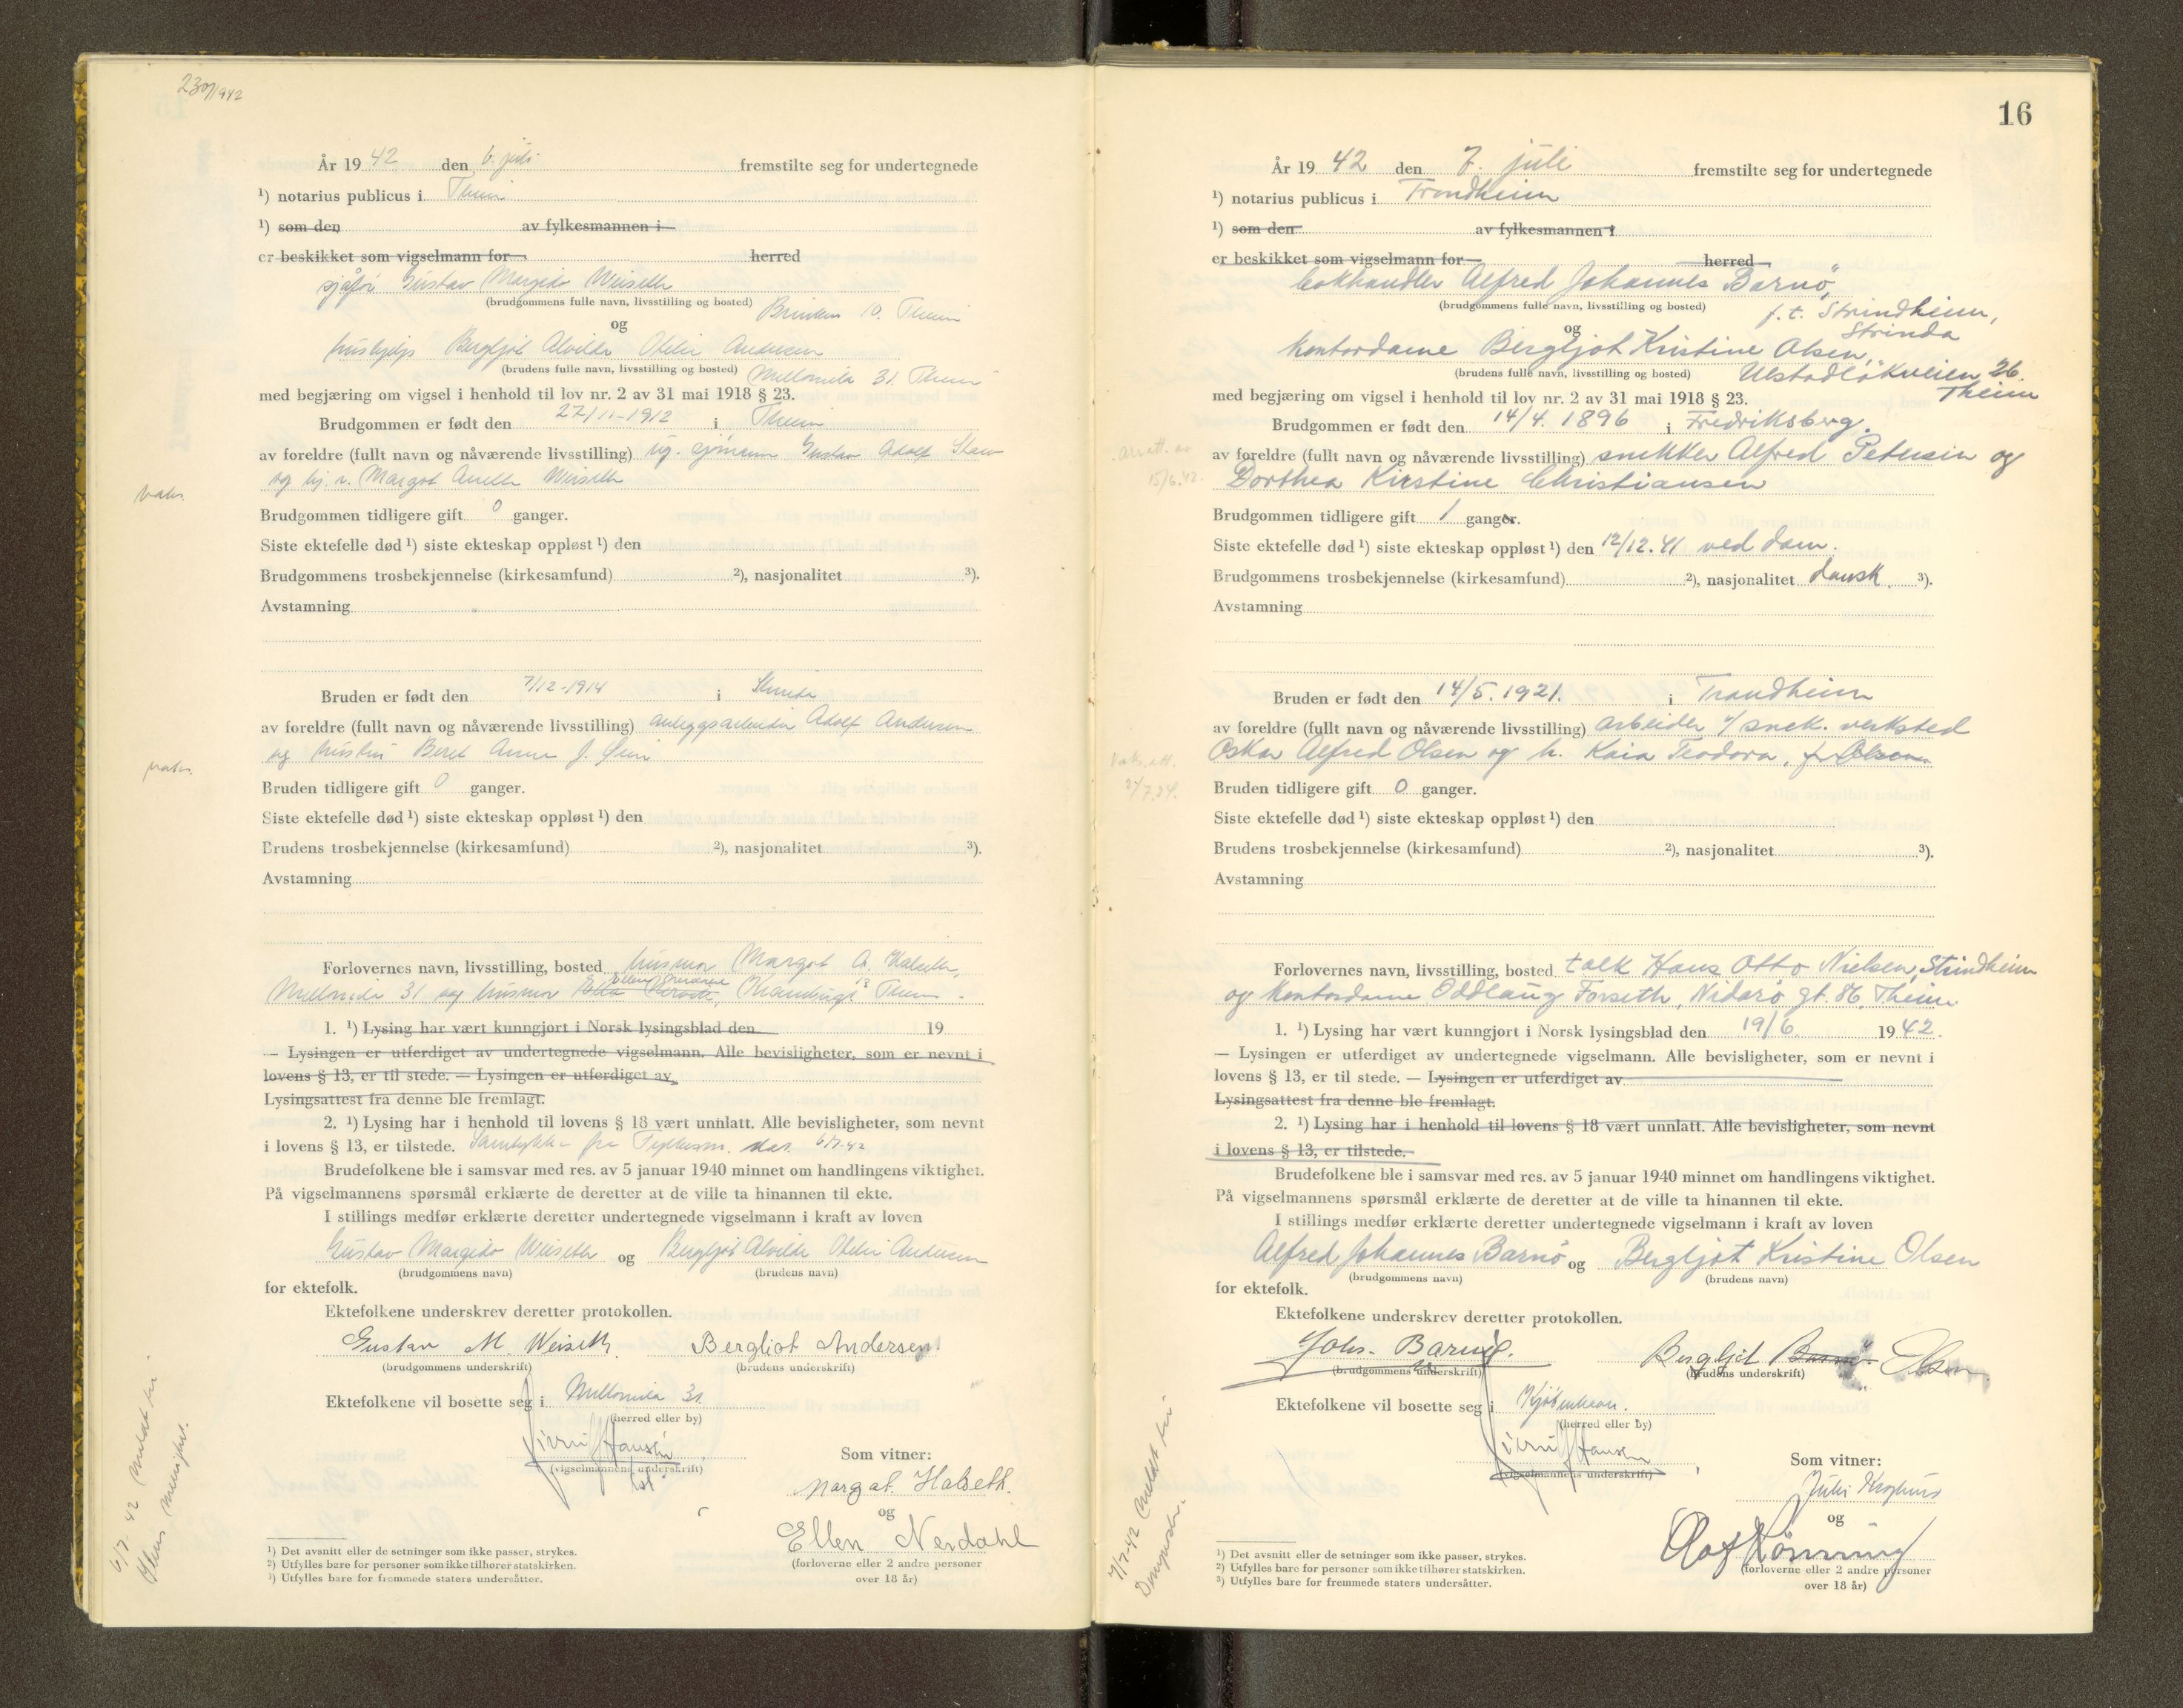 230/1942
År 1942 den 6. juli fremstilte seg for undertegnede
¹) notarius publicus i Theim
¹) som den av fylkesmannen i
er beskikket som vigselmann for herred
sjåfør Gustav Margido Weiseth
(brudgommens fulle navn, livsstilling og bosted)
Brinken 10. Theim
og
hushjelp Bergljot Alvilde Otelie Andersen
(brudens fulle navn, livsstilling og bosted)
Mellomila 31. Theim
med begjæring om vigsel i henhold til lov nr. 2 av 31 mai 1918 § 23.
Brudgommen er født den 27/11-1912 i Theim
av foreldre (fullt navn og nåværende livsstilling) ug. sjømann Gustav Adolf
og hj. v. Margot Weiseth
Brudgommen tidligere gift 0 ganger.
Siste ektefelle død ¹) siste ekteskap oppløst ¹) den
Brudgommens trosbekjennelse (kirkesamfund) ²), nasjonalitet ³).
Avstamning
Bruden er født den 7/12-1914 i Strinda
av foreldre (fullt navn og nåværende livsstilling) anleggsarbeider Adolf Andersen
og hustru Beret Anna f.
Bruden tidligere gift 0 ganger.
Siste ektefelle død ¹) siste ekteskap oppløst ¹) den
Brudens trosbekjennelse (kirkesamfund) ²), nasjonalitet ³).
Avstamning
Forlovernes navn, livsstilling, bosted husmor Margot A. Halseth,
Mellomila 31 og husmor Ella Ellen Theim.
1. ¹) Lysing har vært kunngjort i Norsk lysingsblad den 19
— Lysingen er utferdiget av undertegnede vigselmann. Alle bevisligheter, som er nevnt i
lovens § 13, er til stede. — Lysingen er utferdiget av
Lysingsattest fra denne ble fremlagt.
2. ¹) Lysing har i henhold til lovens § 18 vært unnlatt. Alle bevisligheter, som nevnt
i lovens § 13, er tilstede. Samtykke fra Fylkesm. dat. 6/7-42
Brudefolkene ble i samsvar med res. av 5 januar 1940 minnet om handlingens viktighet.
På vigselmannens spørsmål erklærte de deretter at de ville ta hinannen til ekte.
I stillings medfør erklærte deretter undertegnede vigselmann i kraft av loven
Gustav Margido Weiseth og Bergljot Alvilde Otelie Andersen
(brudgommens navn) (brudens navn)
for ektefolk.
Ektefolkene underskrev deretter protokollen.
Gustav M. Weiseth. Bergliot Andersen.
(brudgommens underskrift) (brudens underskrift)
Ektefolkene vil bosette seg i Mellomila 31.
(herred eller by)
Hansen
(vigselmannens underskrift)
Som vitner:
Margot Halseth.
og
Ellen Nerdahl
(forloverne eller 2 andre personer
over 18 år)
¹) Det avsnitt eller de setninger som ikke passer, strykes.
²) Utfylles bare for personer som ikke tilhører statskirken.
³) Utfylles bare for fremmede staters undersåtter.
6/7-42 meldt til
menighet.
16
År 1942 den 7. juli fremstilte seg for undertegnede
¹) notarius publicus i Trondheim
¹) som den av fylkesmannen i
er beskikket som vigselmann for herred
Alfred Johannes Barnö,
(brudgommens fulle navn, livsstilling og bosted)
f. t. Strindheim,
Strinda
og
Kontordame Bergljot Kristine Olsen,
(brudens fulle navn, livsstilling og bosted)
Ulstadløkveien 26.
Theim
med begjæring om vigsel i henhold til lov nr. 2 av 31 mai 1918 § 23.
Brudgommen er født den 14/4. 1896 i Fredriksberg.
av foreldre (fullt navn og nåværende livsstilling) snekker Alfred Petersen og
Dorthea Kirstine Christiansen
15/6.42.
Brudgommen tidligere gift 1 ganger.
Siste ektefelle død ¹) siste ekteskap oppløst ¹) den 12/12.41 ved dom.
Brudgommens trosbekjennelse (kirkesamfund) ²), nasjonalitet dansk. ³).
Avstamning
Bruden er født den 14/5. 1921. i Trondheim
av foreldre (fullt navn og nåværende livsstilling) arbeider v/ snek. verksted
Oskar Alfred Olsen og h. Kaia Teodora, f. Olsen
Bruden tidligere gift 0 ganger.
Siste ektefelle død ¹) siste ekteskap oppløst ¹) den
Brudens trosbekjennelse (kirkesamfund) ²), nasjonalitet ³).
Avstamning
Forlovernes navn, livsstilling, bosted tolk Hans Otto Nielsen, Strindheim
og Kontordame Oddlaug Forseth, Nidarö gt. 86, Theim.
1. ¹) Lysing har vært kunngjort i Norsk lysingsblad den 19/6 1942.
— Lysingen er utferdiget av undertegnede vigselmann. Alle bevisligheter, som er nevnt i
lovens § 13, er til stede. — Lysingen er utferdiget av
Lysingsattest fra denne ble fremlagt.
2. ¹) Lysing har i henhold til lovens § 18 vært unnlatt. Alle bevisligheter, som nevnt
i lovens § 13, er tilstede.
Brudefolkene ble i samsvar med res. av 5 januar 1940 minnet om handlingens viktighet.
På vigselmannens spørsmål erklærte de deretter at de ville ta hinannen til ekte.
I stillings medfør erklærte deretter undertegnede vigselmann i kraft av loven
Alfred Johannes Barnö og Bergljot Kristine Olsen
(brudgommens navn) (brudens navn)
for ektefolk.
Ektefolkene underskrev deretter protokollen.
Johs. Barnö. Bergljot Barnö Olsen.
(brudgommens underskrift) (brudens underskrift)
Ektefolkene vil bosette seg i Kjöbenhavn.
(herred eller by)
Hansen
(vigselmannens underskrift)
Som vitner:
og
Olaf Rönning
(forloverne eller 2 andre personer
over 18 år)
¹) Det avsnitt eller de setninger som ikke passer, strykes.
²) Utfylles bare for personer som ikke tilhører statskirken.
³) Utfylles bare for fremmede staters undersåtter.
7/7-42 meldt til